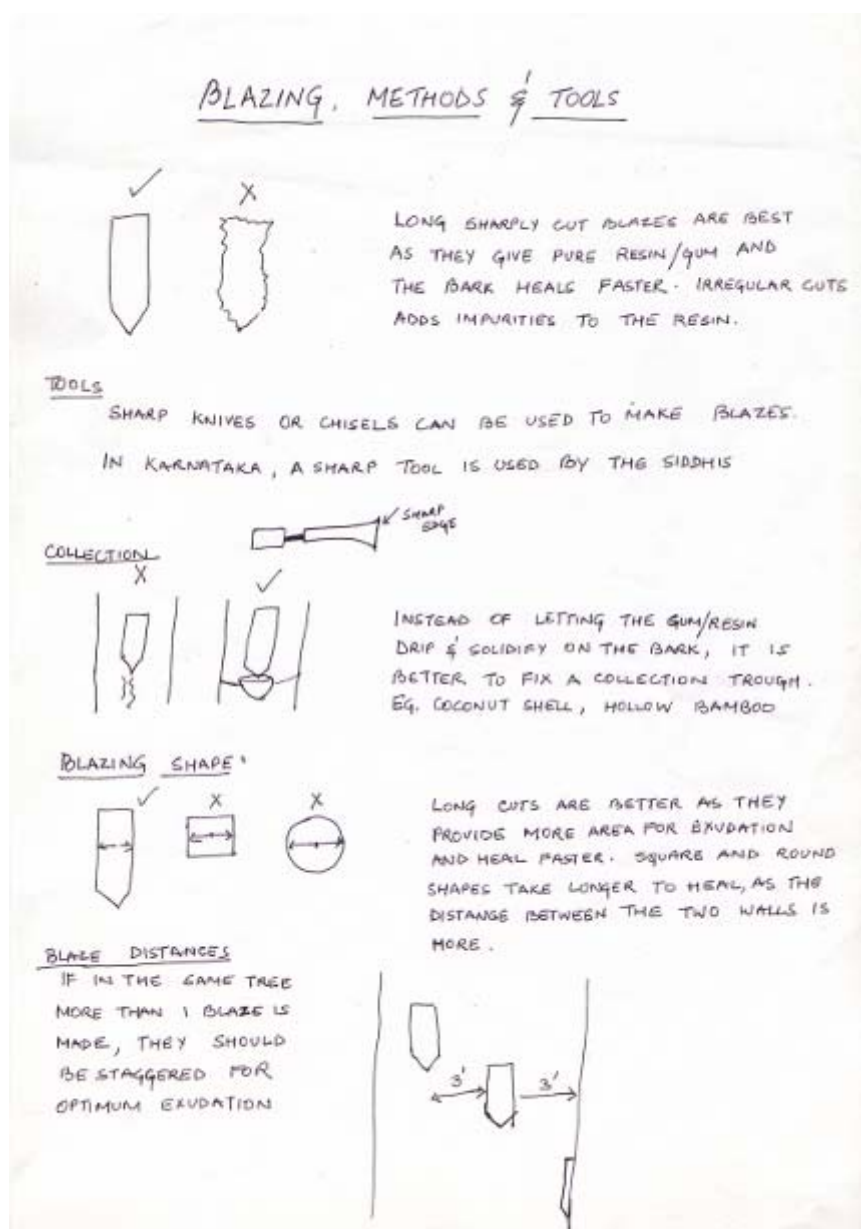 BLAZING, METHODS & TOOLS
✓ X
LONG SHARPLY CUT BLAZES ARE BEST
AS THEY GIVE PURE RESIN/GUM AND
THE BARK HEALS FASTER. IRREGULAR CUTS
ADDS IMPURITIES TO THE RESIN.
TOOLS
SHARP KNIVES OR CHISELS CAN BE USED TO MAKE BLAZES.
IN KARNATAKA, A SHARP TOOL IS USED BY THE SIDDHIS
SHARP
EDGE
COLLECTION
X ✓
INSTEAD OF LETTING THE GUM/RESIN
DRIP & SOLIDIFY ON THE BARK, IT IS
BETTER TO FIX A COLLECTION TROUGH.
EG. COCONUT SHELL, HOLLOW BAMBOO
BLAZING SHAPE
✓ X X
LONG CUTS ARE BETTER AS THEY
PROVIDE MORE AREA FOR EXUDATION
AND HEAL FASTER. SQUARE AND ROUND
SHAPES TAKE LONGER TO HEAL, AS THE
DISTANCE BETWEEN THE TWO WALLS IS
MORE.
BLAZE DISTANCES
IF IN THE SAME TREE
MORE THAN 1 BLAZE IS
MADE, THEY SHOULD
BE STAGGERED FOR
OPTIMUM EXUDATION
3' 3'